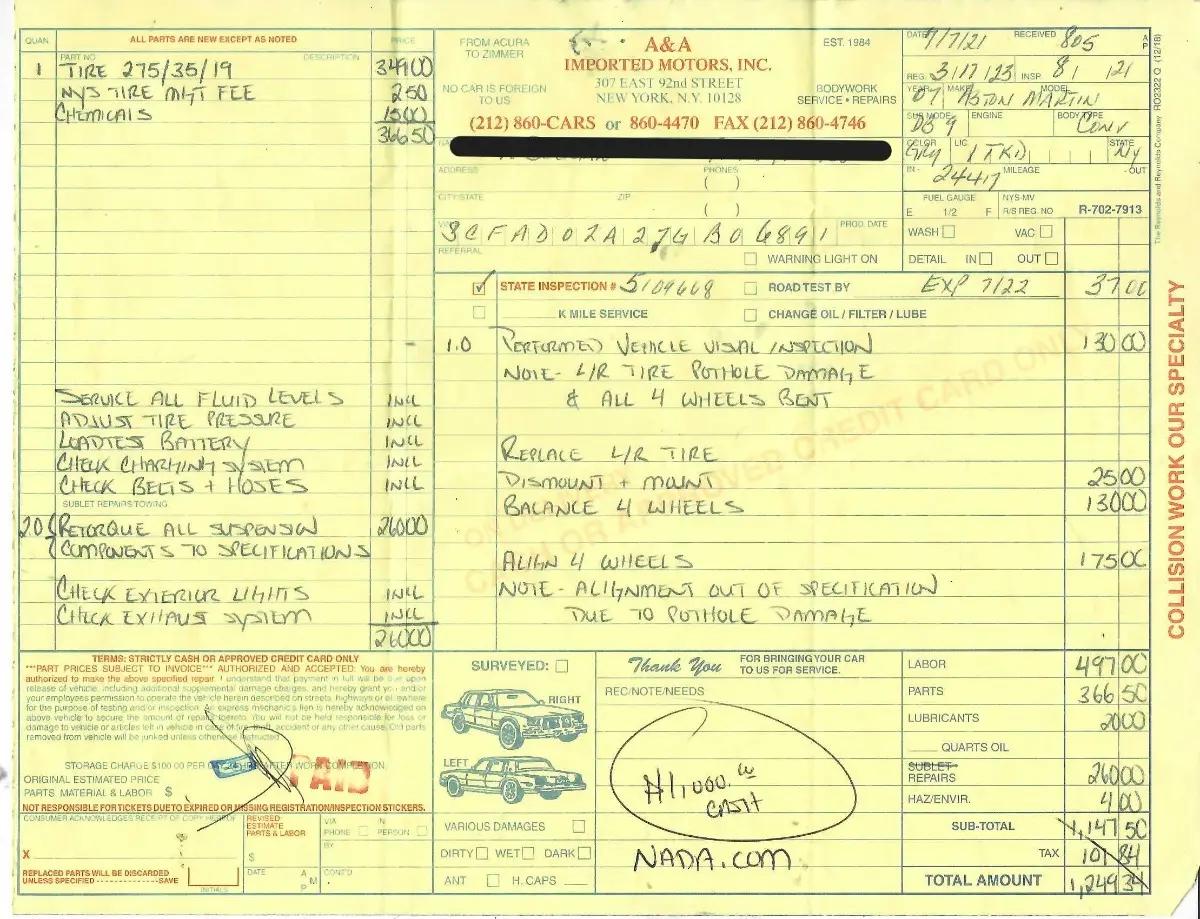 QUAN. ALL PARTS ARE NEW EXCEPT AS NOTED PRICE
PART NO. DESCRIPTION
1 TIRE 275/35/19 349 00
NYS TIRE MGT FEE 2 50
CHEMICALS 15 00
366 50
SERVICE ALL FLUID LEVELS INCL
ADJUST TIRE PRESSURE INCL
LOADTEST BATTERY INCL
CHECK CHARGING SYSTEM INCL
CHECK BELTS + HOSES INCL
SUBLET REPAIRS TOWING
2.0 RETORQUE ALL SUSPENSION 260 00
COMPONENTS TO SPECIFICATIONS
CHECK EXTERIOR LIGHTS INCL
CHECK EXHAUST SYSTEM INCL
260 00
FROM ACURA
TO ZIMMER
NO CAR IS FOREIGN
TO US
A&A
IMPORTED MOTORS, INC.
307 EAST 92nd STREET
NEW YORK, N.Y. 10128
EST. 1984
BODYWORK
SERVICE • REPAIRS
(212) 860-CARS or 860-4470 FAX (212) 860-4746
ADDRESS PHONES
( )
CITY/STATE ZIP
( )
PROD. DATE
SCFAD02A27GB06891
REFERRAL
WARNING LIGHT ON
DATE 7/7/21 RECEIVED 805 A P
REG. 3/17/23 INSP. 8/ /21
YEAR 07 MAKE ASTON MARTIN MODEL
SUB MODEL DB9 ENGINE BODY TYPE CONV
COLOR GRY LIC STATE NY
IN - 24417 MILEAGE - OUT
FUEL GAUGE NYS-MV
E 1/2 F R/S REG. NO R-702-7913
WASH VAC
DETAIL IN OUT
The Reynolds and Reynolds Company RO2322 Q (12/18)
STATE INSPECTION # 5109668 ROAD TEST BY EXP 7/22 37 00
K MILE SERVICE CHANGE OIL / FILTER / LUBE
1.0 PERFORMED VEHICLE VISUAL INSPECTION 130 00
NOTE - L/R TIRE POTHOLE DAMAGE
& ALL 4 WHEELS BENT
REPLACE L/R TIRE
DISMOUNT + MOUNT 25 00
BALANCE 4 WHEELS 130 00
ALIGN 4 WHEELS 175 00
NOTE - ALIGNMENT OUT OF SPECIFICATION
DUE TO POTHOLE DAMAGE
COLLISION WORK OUR SPECIALTY
TERMS: STRICTLY CASH OR APPROVED CREDIT CARD ONLY
***PART PRICES SUBJECT TO INVOICE*** AUTHORIZED AND ACCEPTED: You are hereby
authorized to make the above specified repair. I understand that payment in full will be due upon
release of vehicle, including additional supplemental damage charges, and hereby grant you and/or
your employees permission to operate the vehicle herein described on streets, highways or elsewhere
for the purpose of testing and/or inspection. An express mechanics lien is hereby acknowledged on
above vehicle to secure the amount of repairs thereto. You will not be held responsible for loss or
damage to vehicle or articles left in vehicle in case of fire, theft, accident or any other cause. Old parts
removed from vehicle will be junked unless otherwise instructed.
STORAGE CHARGE $100.00 PER DAY AFTER WORK COMPLETION.
PAID
ORIGINAL ESTIMATED PRICE
PARTS. MATERIAL & LABOR $
NOT RESPONSIBLE FOR TICKETS DUE TO EXPIRED OR MISSING REGISTRATION/INSPECTION STICKERS.
CONSUMER ACKNOWLEDGES RECEIPT OF COPY HEREOF
X
REPLACED PARTS WILL BE DISCARDED
UNLESS SPECIFIED SAVE
INITIALS
REVISED
ESTIMATE
PARTS & LABOR
$
DATE A M P
VIA IN
PHONE PERSON
BY
CONT'D
SURVEYED:
RIGHT
LEFT
VARIOUS DAMAGES
DIRTY WET DARK
ANT H. CAPS
Thank You FOR BRINGING YOUR CAR
TO US FOR SERVICE.
REC/NOTE/NEEDS
$1,000.00
CASH
NADA.COM
LABOR 497 00
PARTS 366 50
LUBRICANTS 20 00
QUARTS OIL
SUBLET
REPAIRS 260 00
HAZ/ENVIR. 4 00
SUB-TOTAL 1,147 50
TAX 101 84
TOTAL AMOUNT 1,249 34